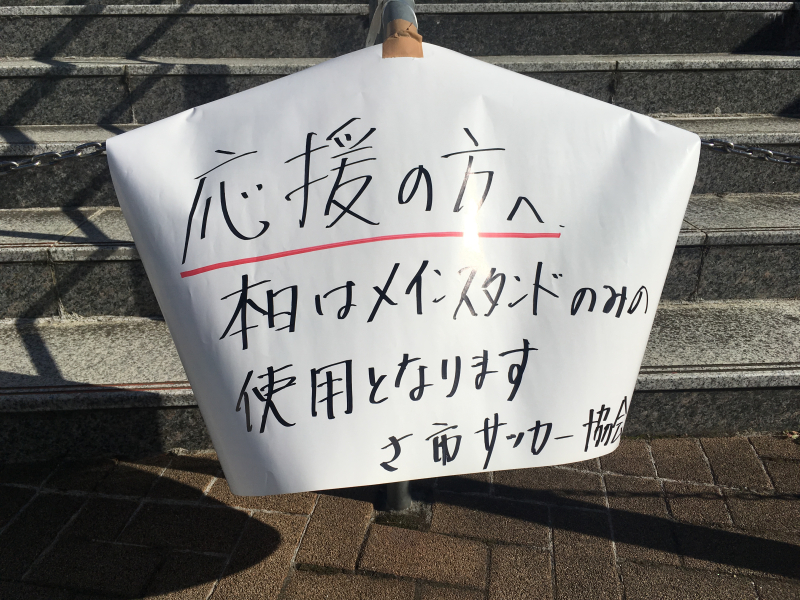 応援の方へ
本日はメインスタンドのみの
使用となります
さ市サッカー協会